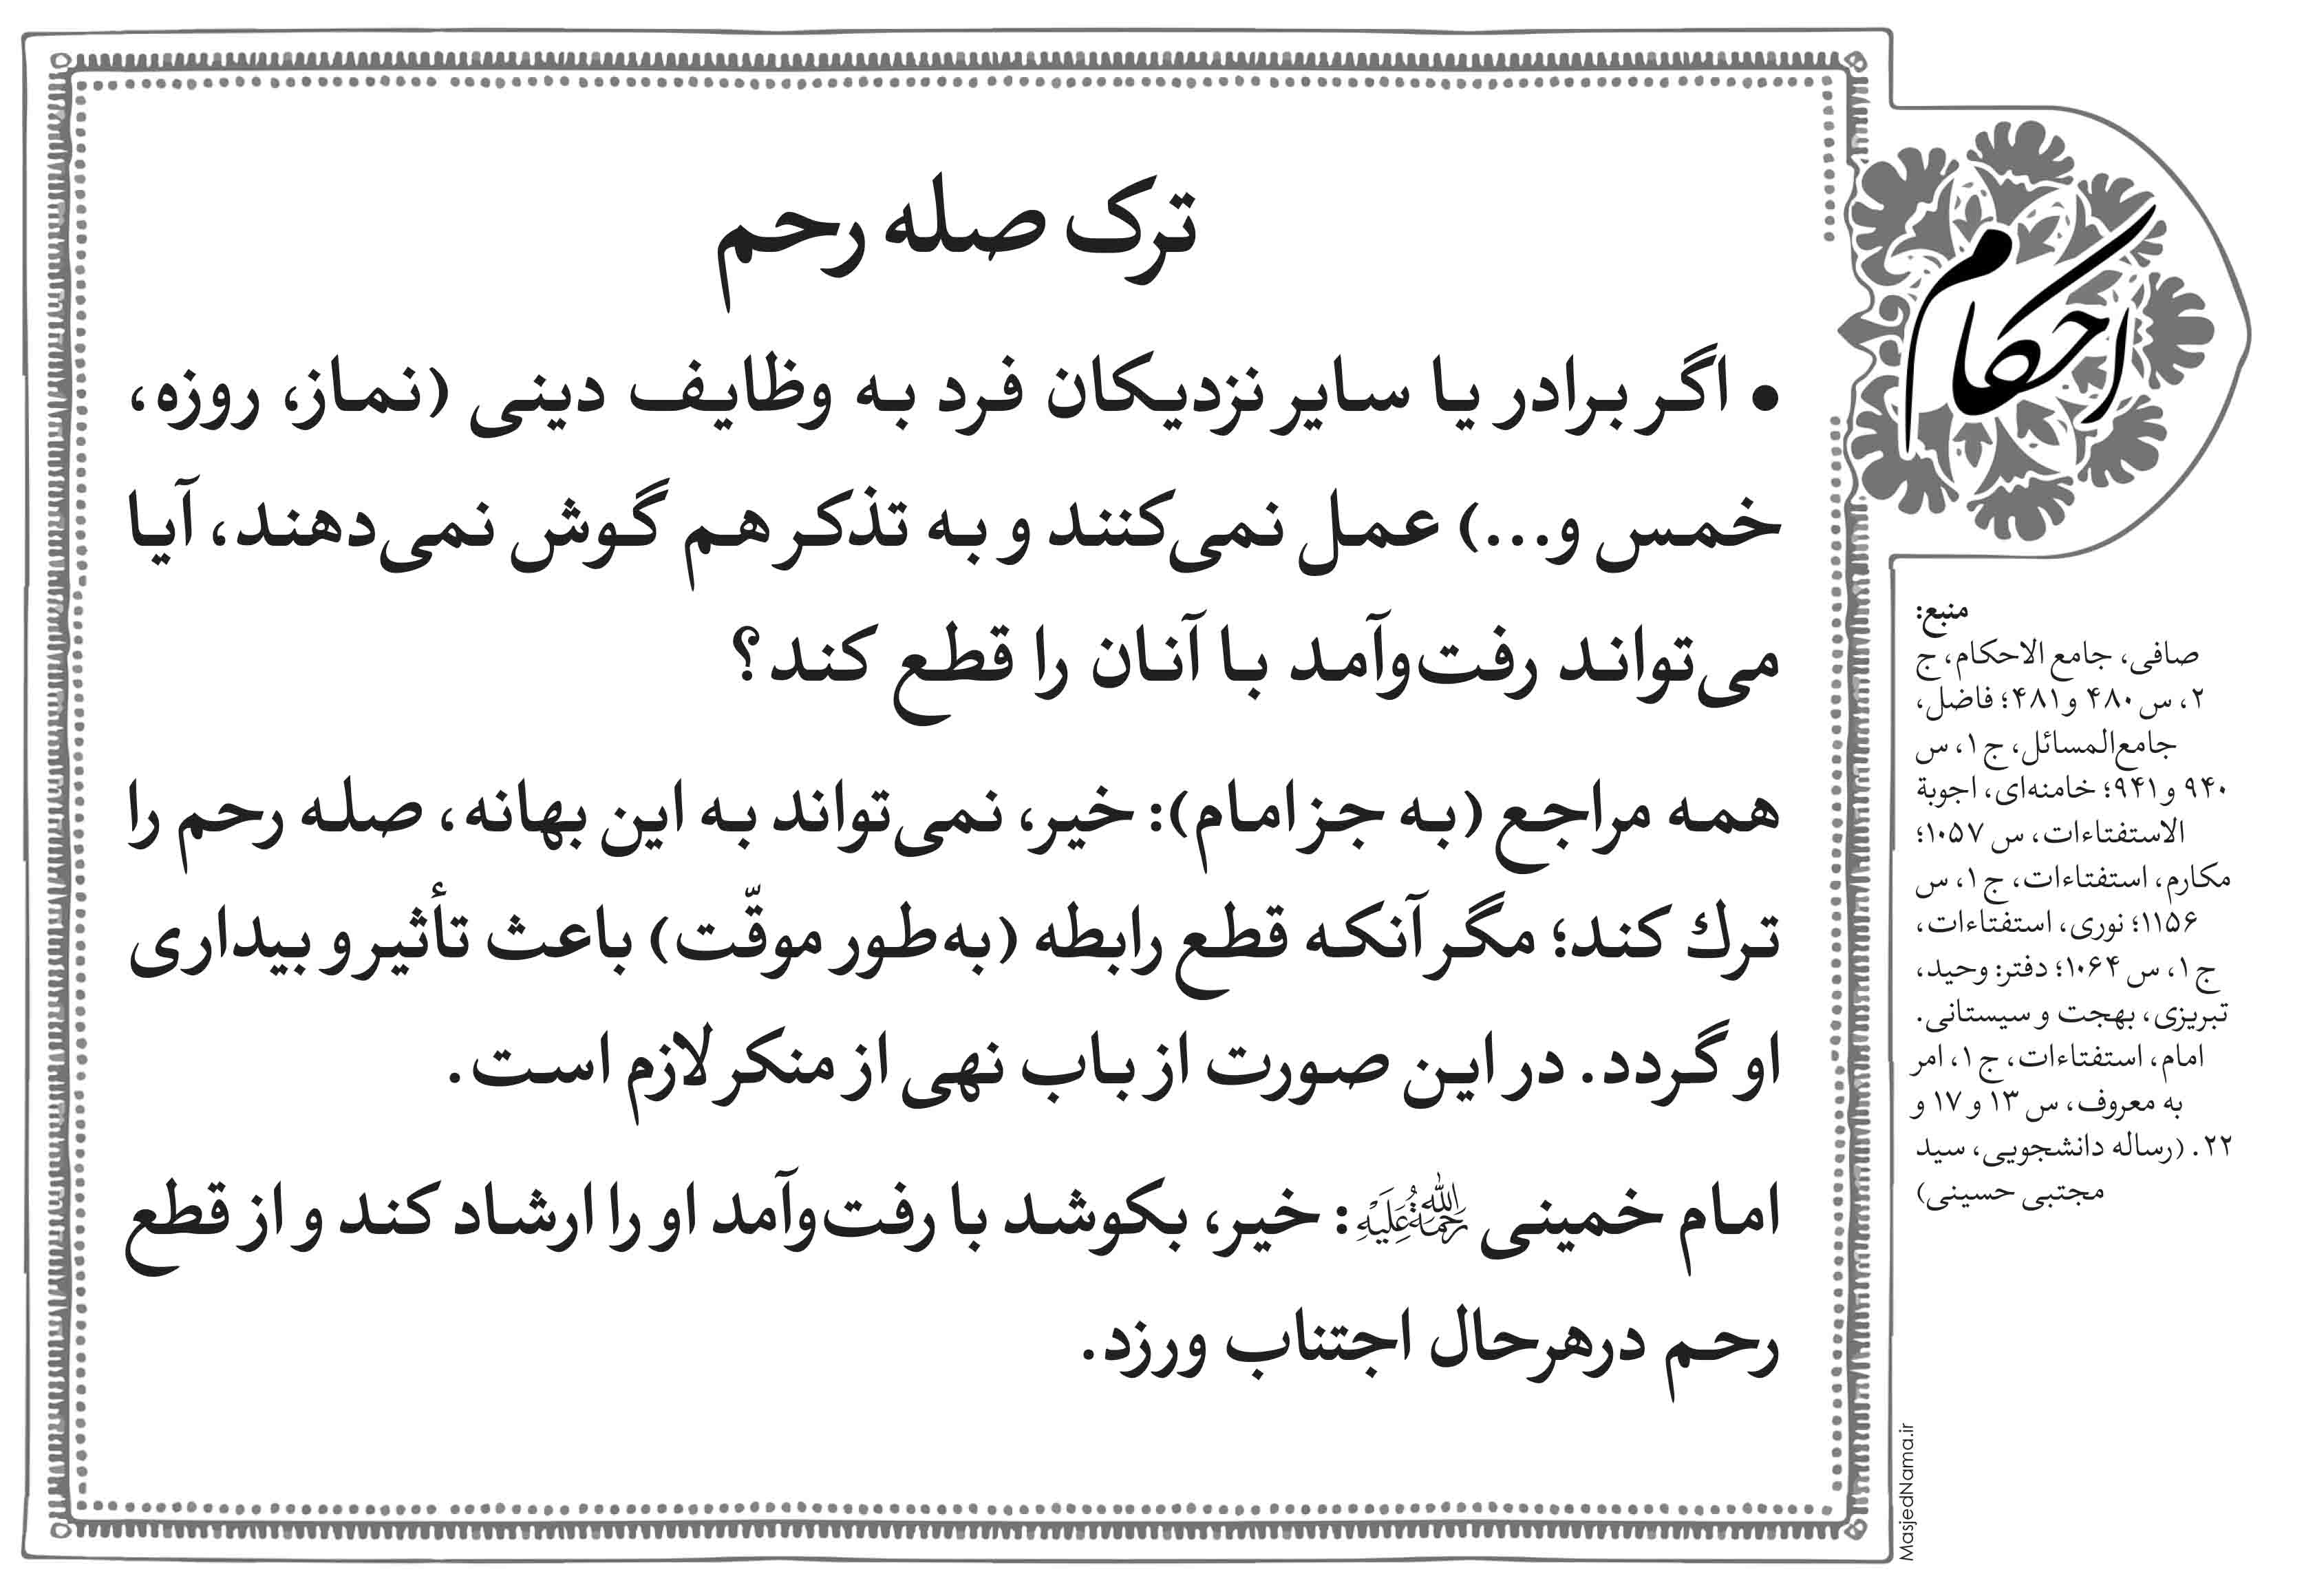 احکام
ترک صله رحم
• اگر برادر یا سایر نزدیکان فرد به وظایف دینی (نماز، روزه،
خمس و...) عمل نمی‌کنند و به تذکر هم گوش نمی‌دهند، آیا
می‌تواند رفت‌وآمد با آنان را قطع کند؟
همه مراجع (به جز امام): خیر، نمی‌تواند به این بهانه، صله رحم را
ترك کند؛ مگر آنکه قطع رابطه (به‌طور موقّت) باعث تأثیر و بیداری
او گردد. در این صورت از باب نهی از منکر لازم است.
امام خمینی رحمة الله علیه: خیر، بکوشد با رفت‌وآمد او را ارشاد کند و از قطع
رحم درهرحال اجتناب ورزد.
منبع:
صافی، جامع الاحکام، ج
۲، س ۴۸۰ و ۴۸۱؛ فاضل،
جامع‌المسائل، ج ۱، س
۹۴۰ و ۹۴۱؛ خامنه‌ای، اجوبة
الاستفتاءات، س ۱۰۵۷؛
مکارم، استفتاءات، ج ۱، س
۱۱۵۶؛ نوری، استفتاءات،
ج ۱، س ۱۰۶۴؛ دفتر: وحید،
تبریزی، بهجت و سیستانی.
امام، استفتاءات، ج ۱، امر
به معروف، س ۱۳ و ۱۷ و
۲۲. (رساله دانشجویی، سید
مجتبی حسینی)
MasjedNama.ir